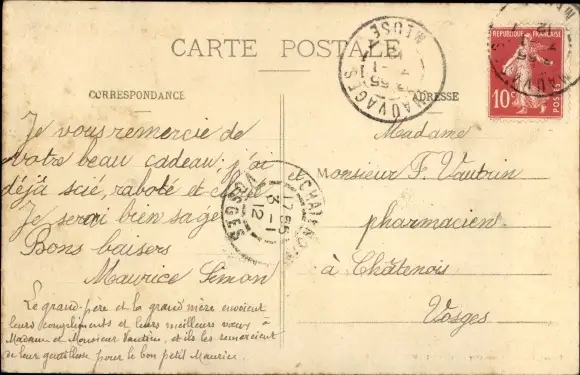 CARTE POSTALE
CORRESPONDANCE
Je vous remercie de
votre beau cadeau; j'ai
déjà scié, raboté et
Je serai bien sage
Bons baisers
Maurice Simon
Le grand-père et la grand'mère envoient
leurs compliments et leurs meilleurs vœux à
Madame et Monsieur Vautrin, et ils les remercient
de leur gentillesse pour le bon petit Maurice.
ADRESSE
Madame
Monsieur F. Vautrin
pharmacien
à Châtenois
Vosges
MAUVAGES
MEUSE
REPUBLIQUE FRANÇAISE
10c
POSTES
CHATENOIS
17 55
3 -1
12
VOSGES